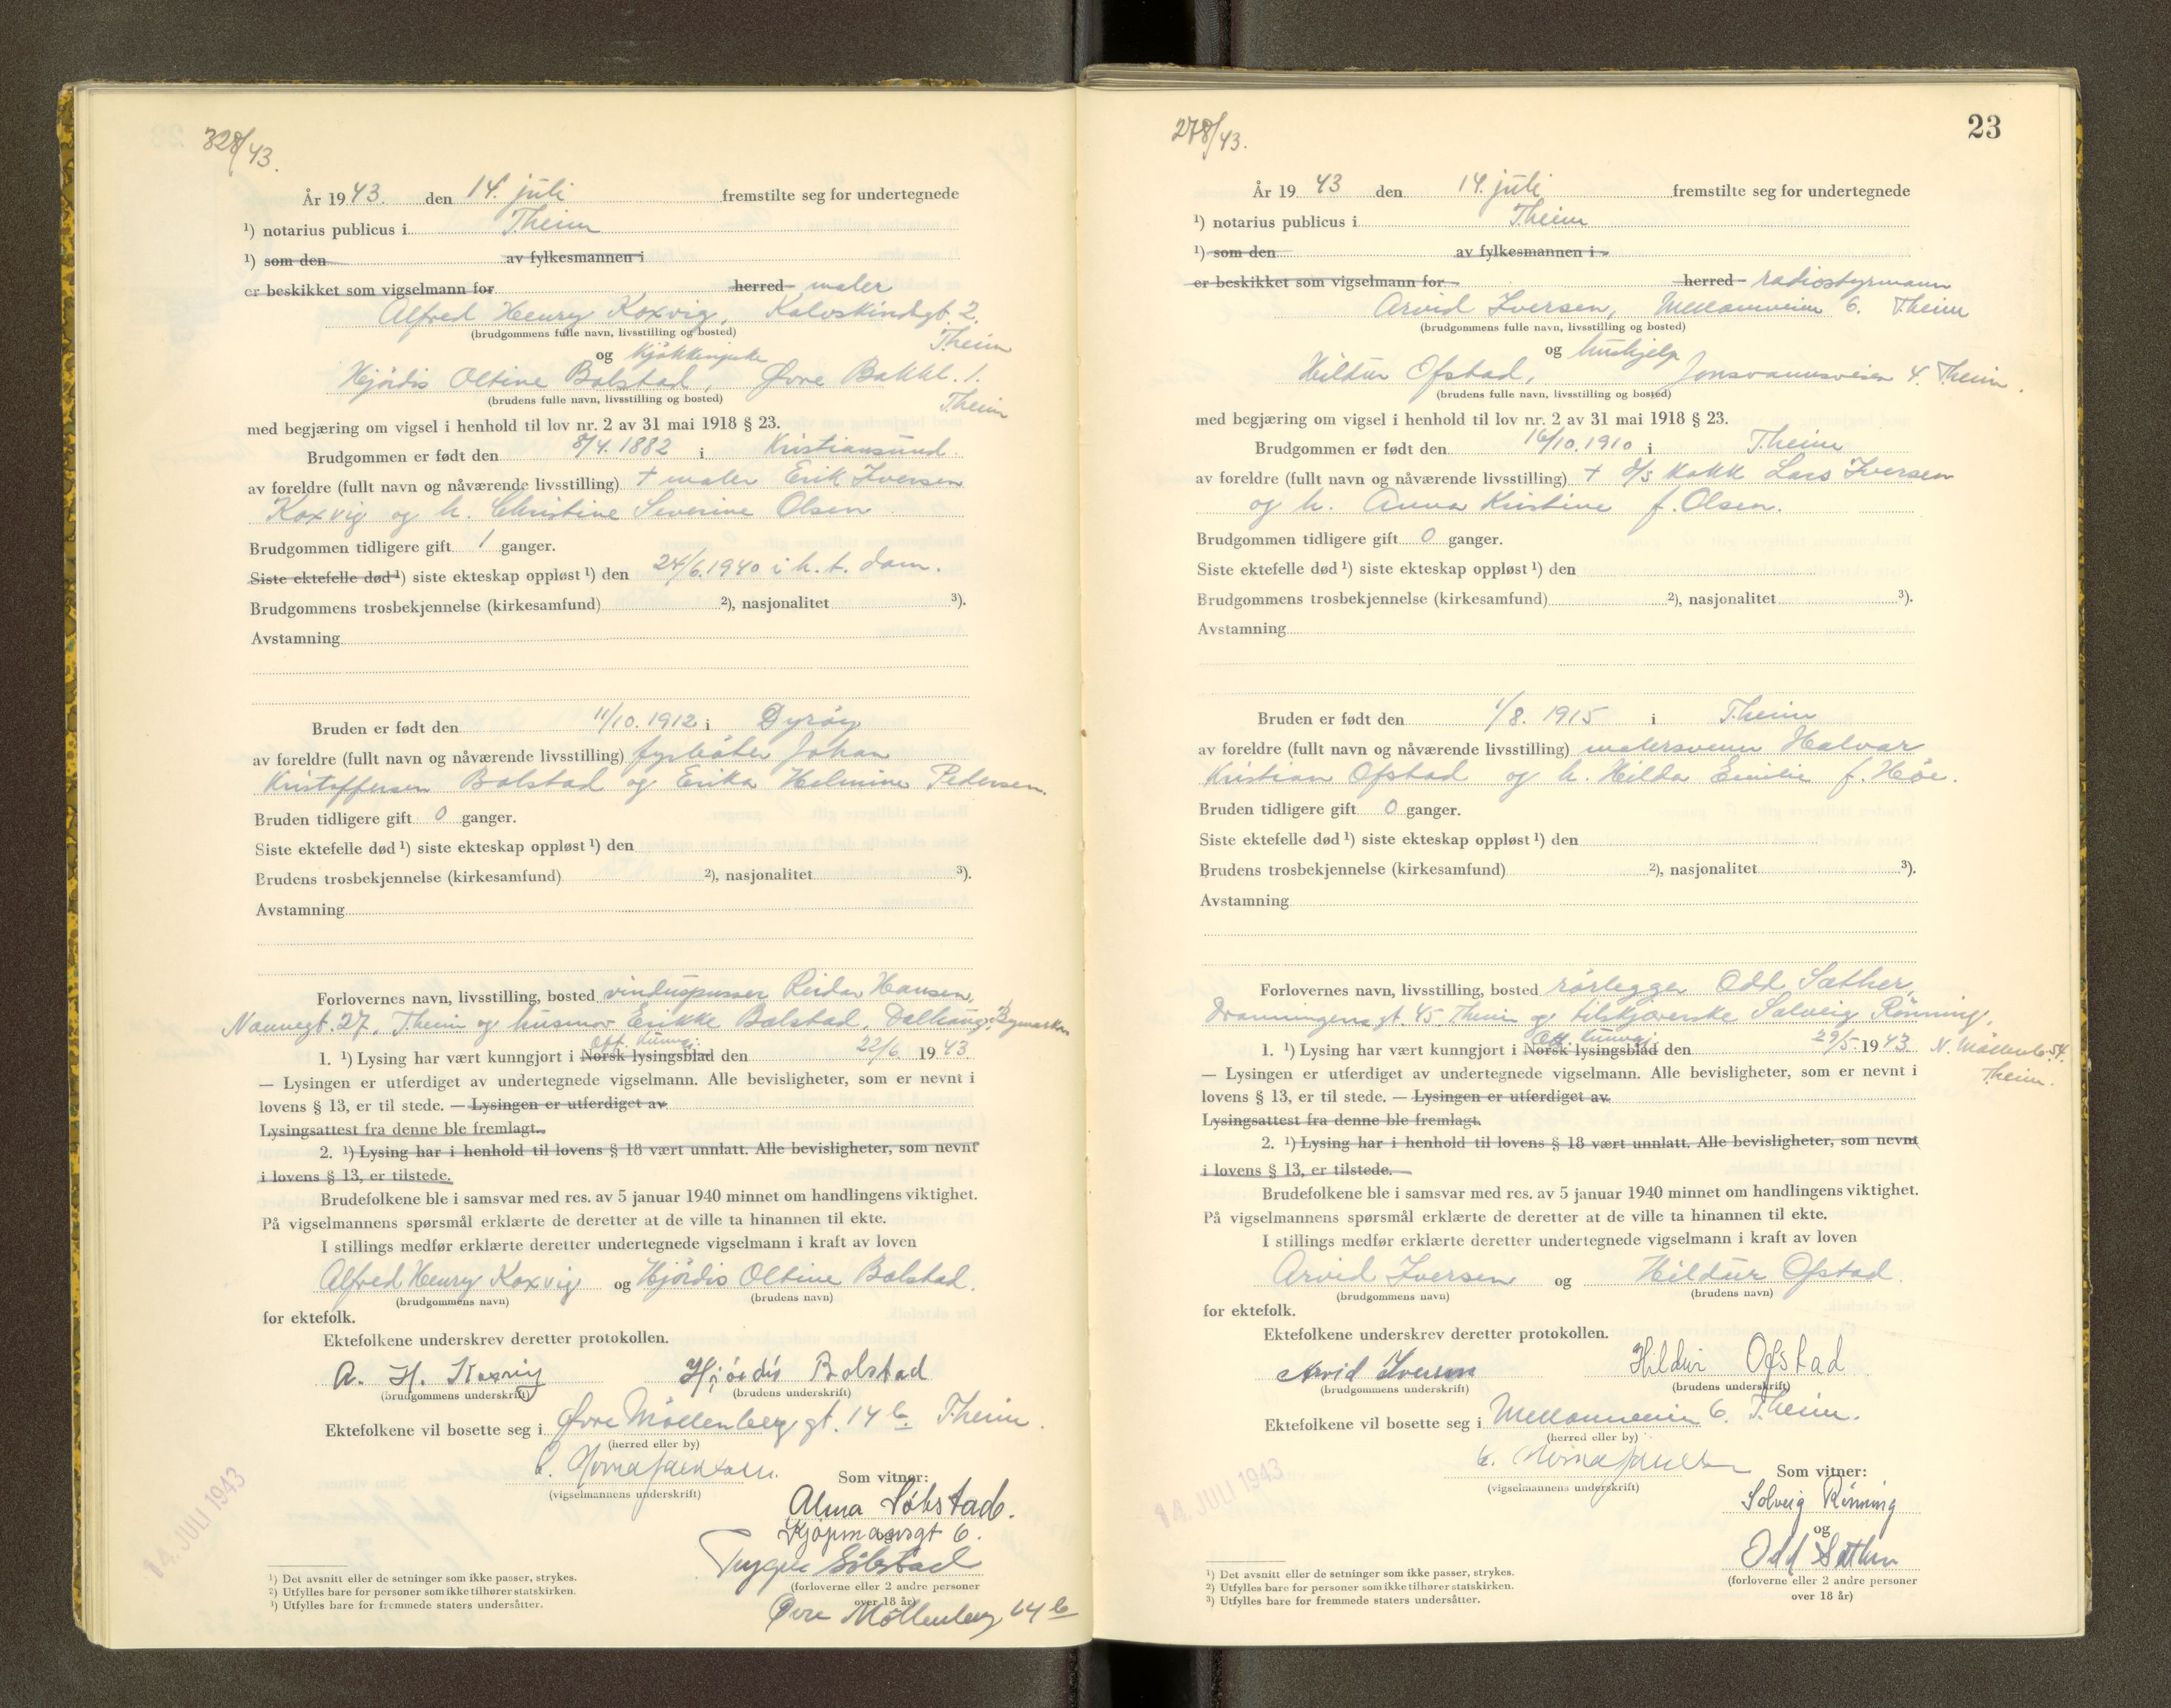 328/43.
År 1943. den 14. juli fremstilte seg for undertegnede
¹) notarius publicus i Theim
¹) som den av fylkesmannen i
er beskikket som vigselmann for herred maler
Alfred Henry Koxvig, Kalvskindsgt 2.
(brudgommens fulle navn, livsstilling og bosted)
Theim
og kjøkkenpike
Hjördis Oltine Bolstad, Øvre Bakkl. 1.
(brudens fulle navn, livsstilling og bosted)
Theim
med begjæring om vigsel i henhold til lov nr. 2 av 31 mai 1918 § 23.
Brudgommen er født den 8/4. 1882 i Kristiansund.
av foreldre (fullt navn og nåværende livsstilling) † maler Erik Iversen
Koxvig og h. Christine Severine Olsen
Brudgommen tidligere gift 1 ganger.
Siste ektefelle død ¹) siste ekteskap oppløst ¹) den 24/6.1940 i h. t. dom.
Brudgommens trosbekjennelse (kirkesamfund) ²), nasjonalitet ³).
Avstamning
Bruden er født den 11/10. 1912 i Dyröy
av foreldre (fullt navn og nåværende livsstilling) fyrbøter Johan
Kristoffersen Bolstad og Erika Helmine Pedersen.
Bruden tidligere gift 0 ganger.
Siste ektefelle død ¹) siste ekteskap oppløst ¹) den
Brudens trosbekjennelse (kirkesamfund) ²), nasjonalitet ³).
Avstamning
Forlovernes navn, livsstilling, bosted vinduspusser Reidar Hansen,
Nannegt. 27, Theim og husmor Erikke Bolstad, Dalhaug, Bymarka
Off. kunngj.
1. ¹) Lysing har vært kunngjort i Norsk lysingsblad den 22/6 1943.
— Lysingen er utferdiget av undertegnede vigselmann. Alle bevisligheter, som er nevnt i
lovens § 13, er til stede. — Lysingen er utferdiget av
Lysingsattest fra denne ble fremlagt.
2. ¹) Lysing har i henhold til lovens § 18 vært unnlatt. Alle bevisligheter, som nevnt
i lovens § 13, er tilstede.
Brudefolkene ble i samsvar med res. av 5 januar 1940 minnet om handlingens viktighet.
På vigselmannens spørsmål erklærte de deretter at de ville ta hinannen til ekte.
I stillings medfør erklærte deretter undertegnede vigselmann i kraft av loven
Alfred Henry Koxvig og Hjördis Oltine Bolstad.
(brudgommens navn) (brudens navn)
for ektefolk.
Ektefolkene underskrev deretter protokollen.
A. H. Koxvig Hjördis Bolstad
(brudgommens underskrift) (brudens underskrift)
Ektefolkene vil bosette seg i Øvre Möllenberg gt. 14 b Theim.
(herred eller by)
Som vitner:
(vigselmannens underskrift)
Alma Sölstad.
Kjöpmansgt 6.
og
Trygve Sölstad
(forloverne eller 2 andre personer
over 18 år)
Øvre Möllenberg 14 b
14. JULI 1943
¹) Det avsnitt eller de setninger som ikke passer, strykes.
²) Utfylles bare for personer som ikke tilhører statskirken.
³) Utfylles bare for fremmede staters undersåtter.
278/43.
23
År 1943 den 14. juli fremstilte seg for undertegnede
¹) notarius publicus i Theim
¹) som den av fylkesmannen i
er beskikket som vigselmann for herred radiostyrmann
Arvid Iversen, Mellomveien 6. Theim
(brudgommens fulle navn, livsstilling og bosted)
og hushjelp
Hildur Ofstad, Jonsvannsveien 4. Theim.
(brudens fulle navn, livsstilling og bosted)
med begjæring om vigsel i henhold til lov nr. 2 av 31 mai 1918 § 23.
Brudgommen er født den 16/10.1910 i Theim
av foreldre (fullt navn og nåværende livsstilling) † d/s kokk Lars Iversen
og h. Anna Kristine f. Olsen.
Brudgommen tidligere gift 0 ganger.
Siste ektefelle død ¹) siste ekteskap oppløst ¹) den
Brudgommens trosbekjennelse (kirkesamfund) ²), nasjonalitet ³).
Avstamning
Bruden er født den 1/8. 1915 i Theim
av foreldre (fullt navn og nåværende livsstilling) malersvenn Halvar
Kristian Ofstad og h. Hilda Emilie f. Höe.
Bruden tidligere gift 0 ganger.
Siste ektefelle død ¹) siste ekteskap oppløst ¹) den
Brudens trosbekjennelse (kirkesamfund) ²), nasjonalitet ³).
Avstamning
Forlovernes navn, livsstilling, bosted rörlegger Odd Sæther,
Dronningens gt. 45. Theim og tilskjærerske Solveig Rönning,
Off. kunngj.
1. ¹) Lysing har vært kunngjort i Norsk lysingsblad den 29/5. 1943. N. Möllenb. 54.
Theim.
— Lysingen er utferdiget av undertegnede vigselmann. Alle bevisligheter, som er nevnt i
lovens § 13, er til stede. — Lysingen er utferdiget av
Lysingsattest fra denne ble fremlagt.
2. ¹) Lysing har i henhold til lovens § 18 vært unnlatt. Alle bevisligheter, som nevnt
i lovens § 13, er tilstede.
Brudefolkene ble i samsvar med res. av 5 januar 1940 minnet om handlingens viktighet.
På vigselmannens spørsmål erklærte de deretter at de ville ta hinannen til ekte.
I stillings medfør erklærte deretter undertegnede vigselmann i kraft av loven
Arvid Iversen og Hildur Ofstad.
(brudgommens navn) (brudens navn)
for ektefolk.
Ektefolkene underskrev deretter protokollen.
Arvid Iversen Hildur Ofstad
(brudgommens underskrift) (brudens underskrift)
Ektefolkene vil bosette seg i Mellomveien 6. Theim.
(herred eller by)
Som vitner:
(vigselmannens underskrift)
Solveig Rönning
og
Odd Sæther
(forloverne eller 2 andre personer
over 18 år)
14. JULI 1943
¹) Det avsnitt eller de setninger som ikke passer, strykes.
²) Utfylles bare for personer som ikke tilhører statskirken.
³) Utfylles bare for fremmede staters undersåtter.